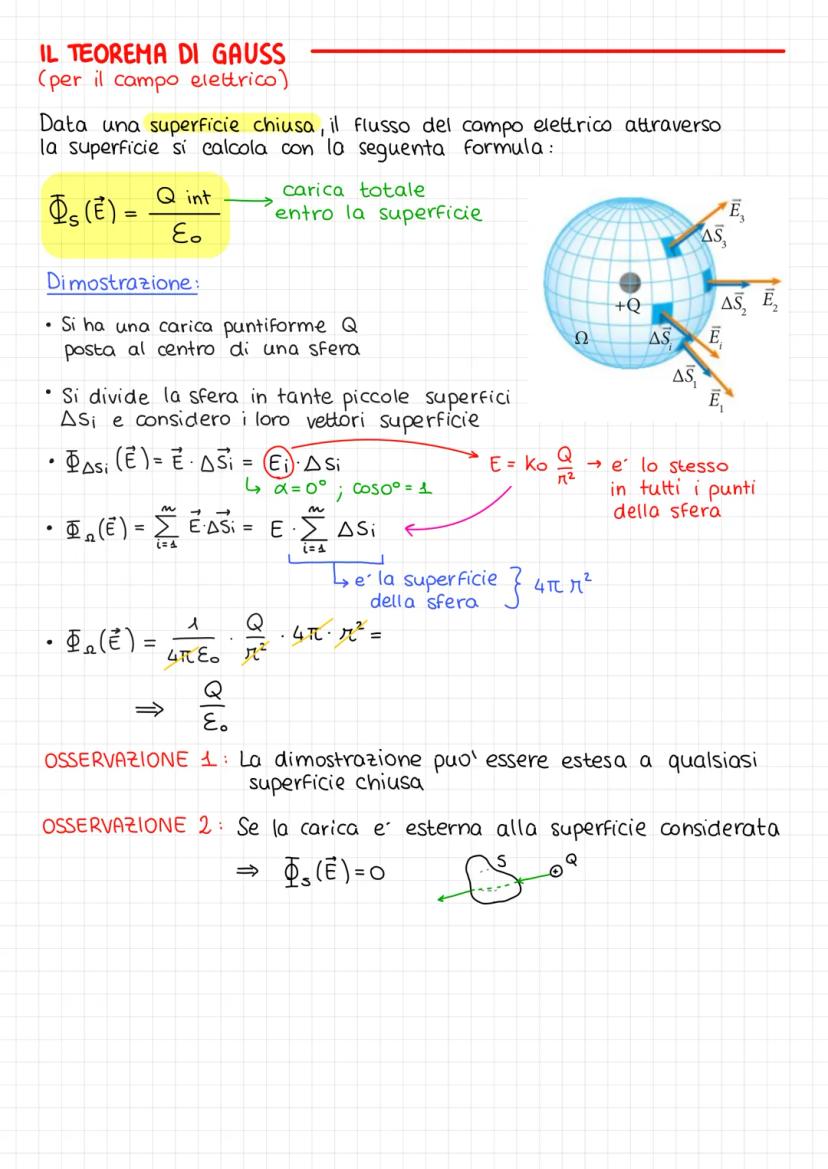 IL TEOREMA DI GAUSS
(per il campo elettrico)
Data una superficie chiusa, il flusso del campo elettrico attraverso
la superficie si calcola con la seguenta formula:
Φs(E⃗) = Q int / εo → carica totale
entro la superficie
E⃗3
ΔS⃗3
+Q
ΔS⃗2 E⃗2
Ω
ΔS⃗i E⃗i
ΔS⃗1
E⃗1
Dimostrazione:
• Si ha una carica puntiforme Q
posta al centro di una sfera
• Si divide la sfera in tante piccole superfici
ΔSi e considero i loro vettori superficie
• ΦΔSi (E⃗) = E⃗ · ΔS⃗i = Ei · ΔSi
↳ α=0° ; cos0°=1
E = Ko Q/r² → e' lo stesso
in tutti i punti
della sfera
• ΦΩ(E⃗) = Σ(i=1, n) E⃗·ΔS⃗i = E · Σ(i=1, n) ΔSi
↳ e' la superficie
della sfera } 4π r²
• ΦΩ(E⃗) = 1/4πεo · Q/r² · 4π · r² =
⇒ Q/εo
OSSERVAZIONE 1: La dimostrazione puo' essere estesa a qualsiasi
superficie chiusa
OSSERVAZIONE 2: Se la carica e' esterna alla superficie considerata
⇒ Φs(E⃗)=0
S
⊕Q